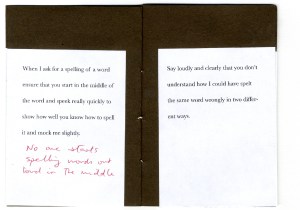 When I ask for a spelling of a word
ensure that you start in the middle of
the word and speak really quickly to
show how well you know how to spell
it and mock me slightly.
No one starts
spelling words out
loud in the middle
Say loudly and clearly that you don't
understand how I could have spelt
the same word wrongly in two differ-
ent ways.